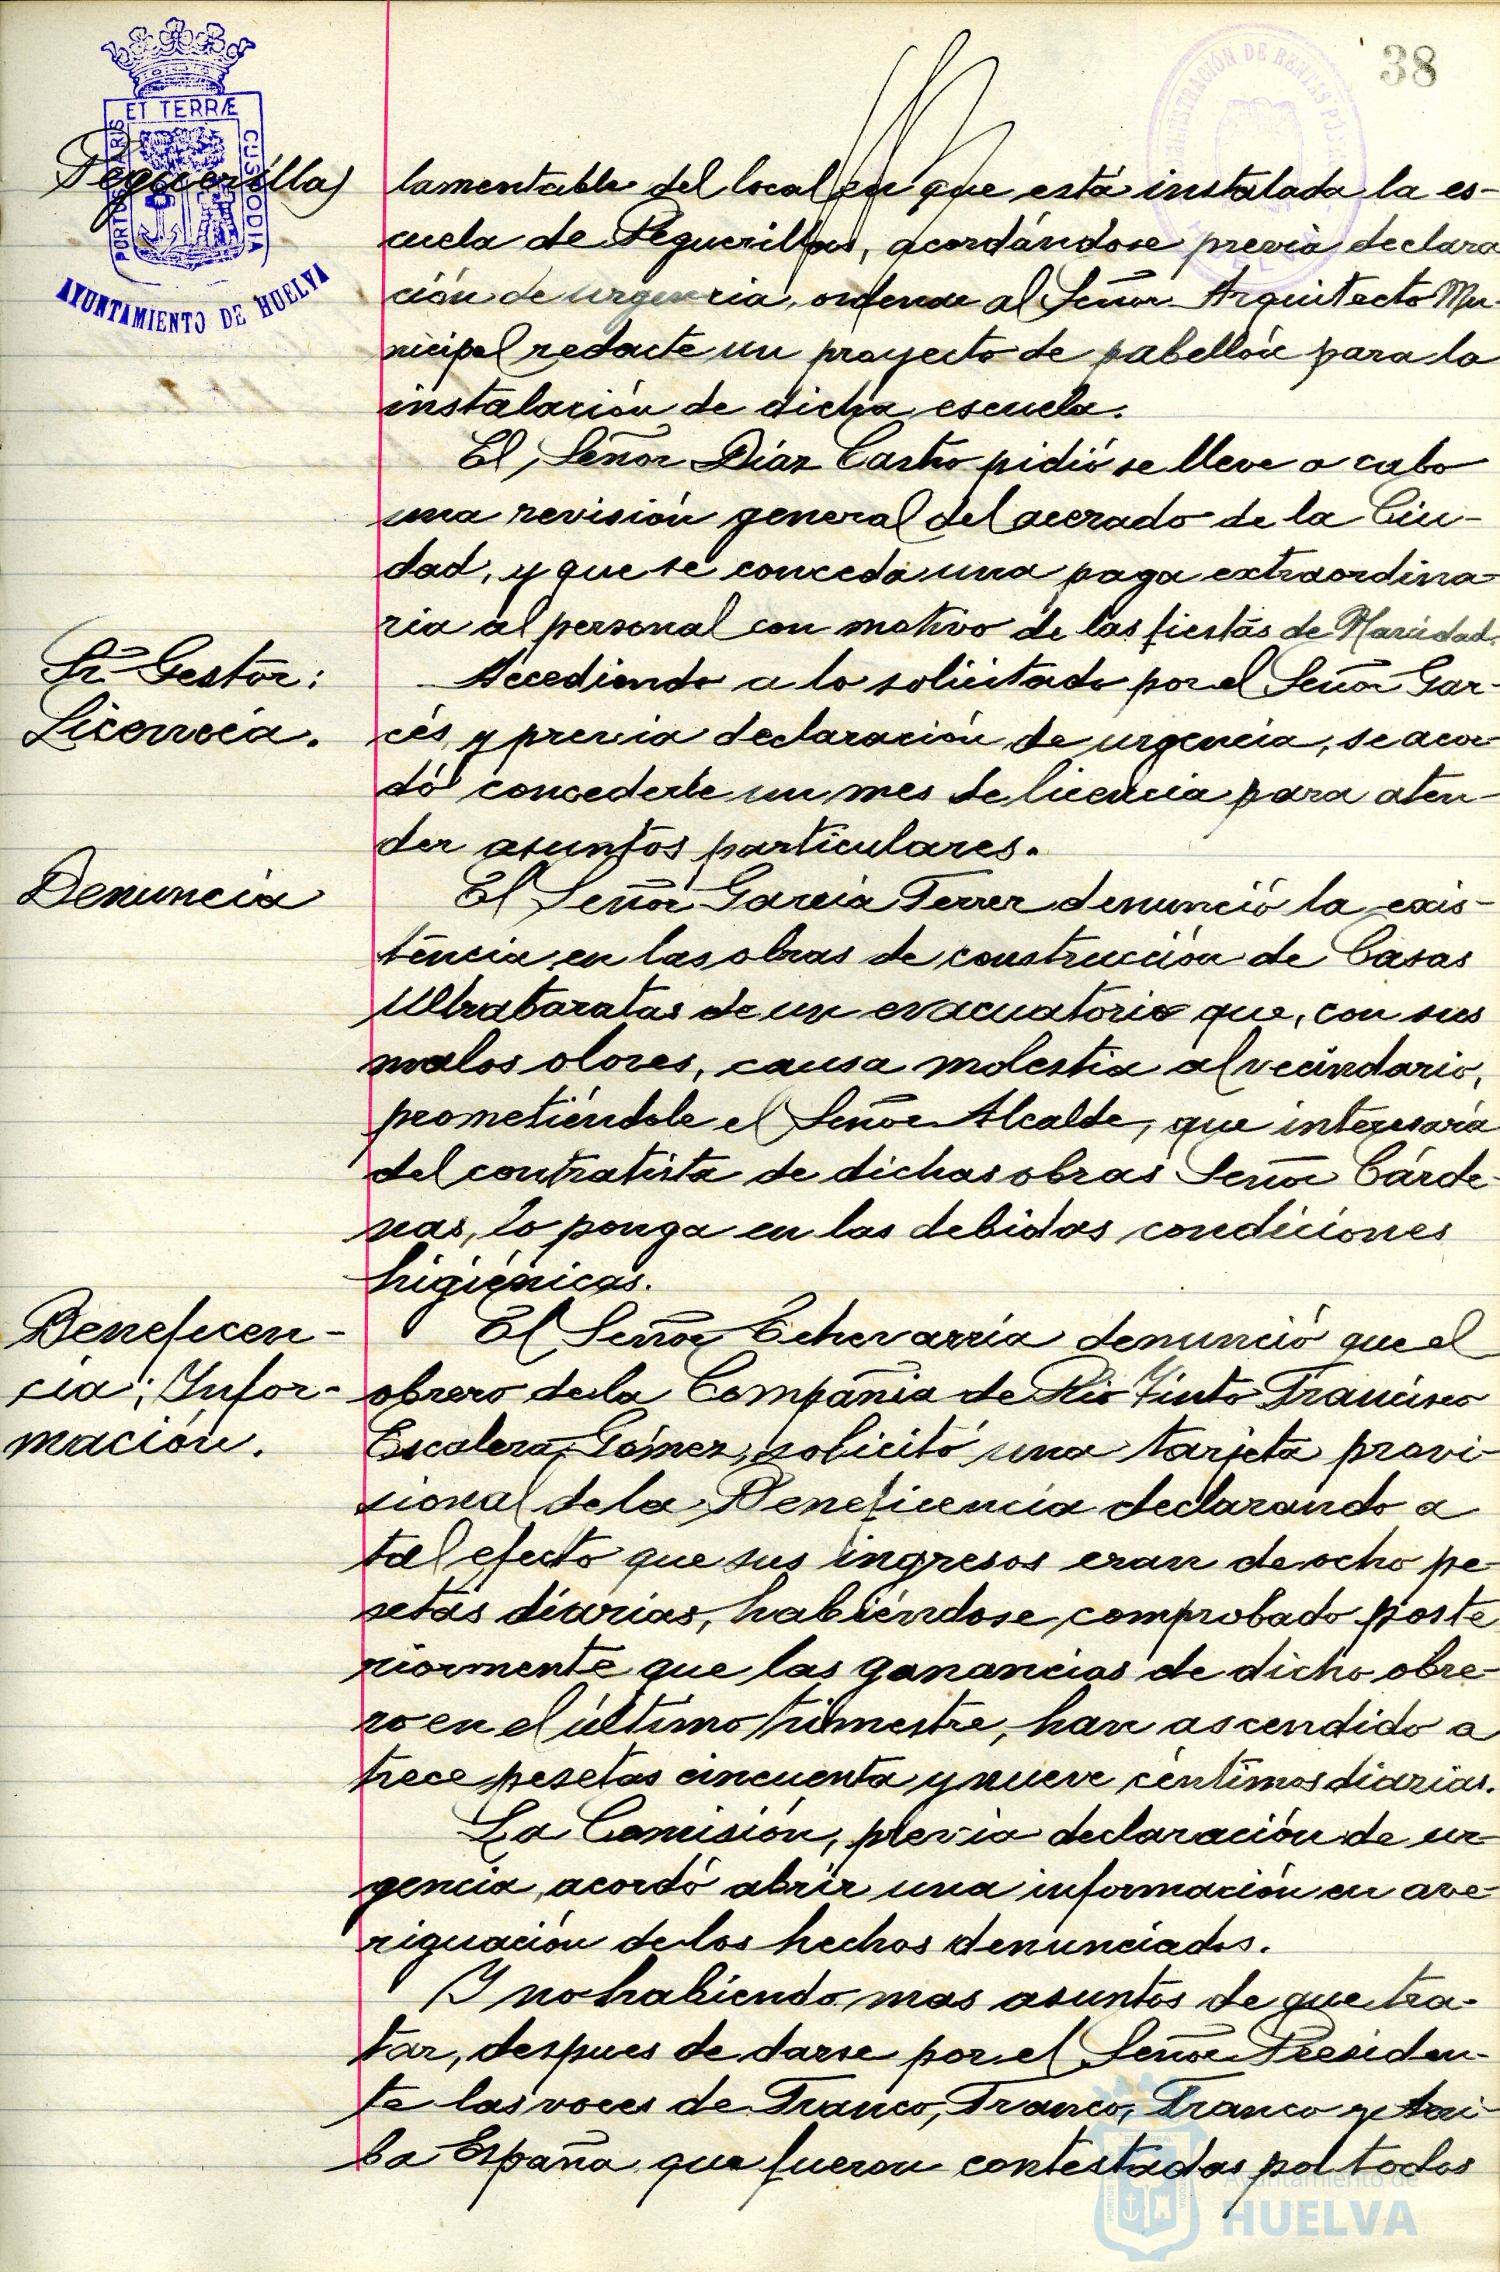 38
ET TERRÆ
CUSTODIA
PORTUS MARIS
AYUNTAMIENTO DE HUELVA
ADMINISTRACIÓN DE RENTAS PÚB
Peguerilla)
lamentable del local en que está instalada la es-
cuela de Peguerillas, acordándose previa declara
ción de urgencia, ordenar al Señor Arquitecto Mu-
nicipal redacte un proyecto de pabellón para la
instalación de dicha escuela.
El Señor Díaz Castro pidió se lleve a cabo
una revisión general del acerado de la Ciu-
dad, y que se conceda una paga extraordina-
ria al personal con motivo de las fiestas de Navidad.
Sr. Gestor:
Licencia.
Accediendo a lo solicitado por el Señor Gar-
cés y previa declaración de urgencia, se acor-
dó concederle un mes de licencia para aten-
der asuntos particulares.
Denuncia
El Señor García Ferrer denunció la exis-
tencia en las obras de construcción de Casas
Ultrabaratas de un evacuatorio que, con sus
malos olores, causa molestia al vecindario,
prometiéndole el Señor Alcalde, que interesará
del contratista de dichas obras Señor Cárde-
nas, lo ponga en las debidas condiciones
higiénicas.
Beneficen-
cia; Infor-
mación.
El Señor Echevarría denunció que el
obrero de la Compañía de Rio Tinto Francisco
Escalera Gómez, solicitó una tarjeta provi-
sional de la Beneficencia declarando a
tal efecto que sus ingresos eran de ocho pe-
setas diarias, habiéndose comprobado poste
riormente que las ganancias de dicho obre-
ro en el último trimestre, han ascendido a
trece pesetas cincuenta y nueve céntimos diarias.
La Comisión, previa declaración de ur-
gencia, acordó abrir una información en ave-
riguación de los hechos denunciados.
Y no habiendo mas asuntos de que tra-
tar, despues de darse por el Señor Presiden-
te las voces de Franco, Franco, Franco y Arri-
ba España que fueron contestadas por todos
Ayuntamiento de
HUELVA